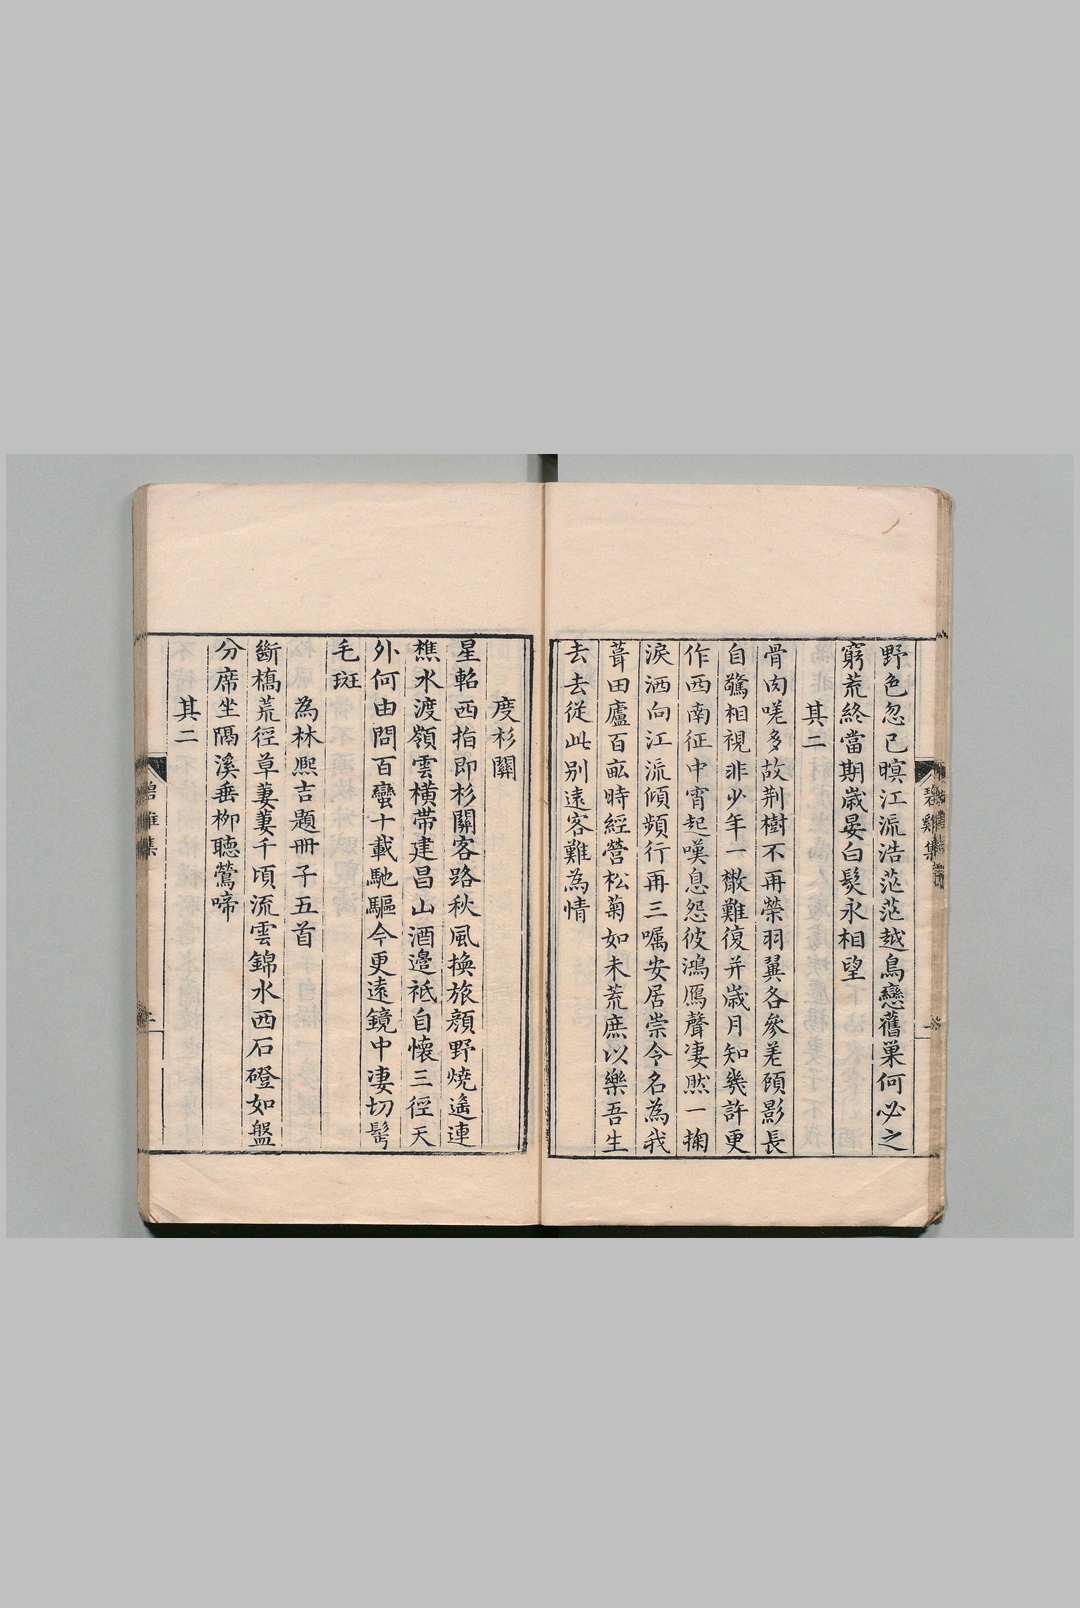 野色忽已暝江流浩茫茫越鳥戀舊巢何必之
窮荒終當期歲晏白髮永相望
其二
骨肉嗟多故荆樹不再榮羽翼各參差顧影長
自驚相視非少年一散難復并歲月知幾許更
作西南征中宵起嘆息怨彼鴻鴈聲凄然一掬
淚洒向江流傾頻行再三囑安居崇令名為我
葺田廬百畝時經營松菊如未荒庶以樂吾生
去去從此别遠客難為情
碧雞集
度杉關
星軺西指即杉關客路秋風換旅顏野燒遙連
樵水渡嶺雲橫帶建昌山酒邊祗自懷三徑天
外何由問百蠻十載馳驅今更遠鏡中凄切髩
毛斑
為林熈吉題冊子五首
斷橋荒徑草萋萋千頃流雲錦水西石磴如盤
分席坐隔溪垂柳聽鶯啼
其二